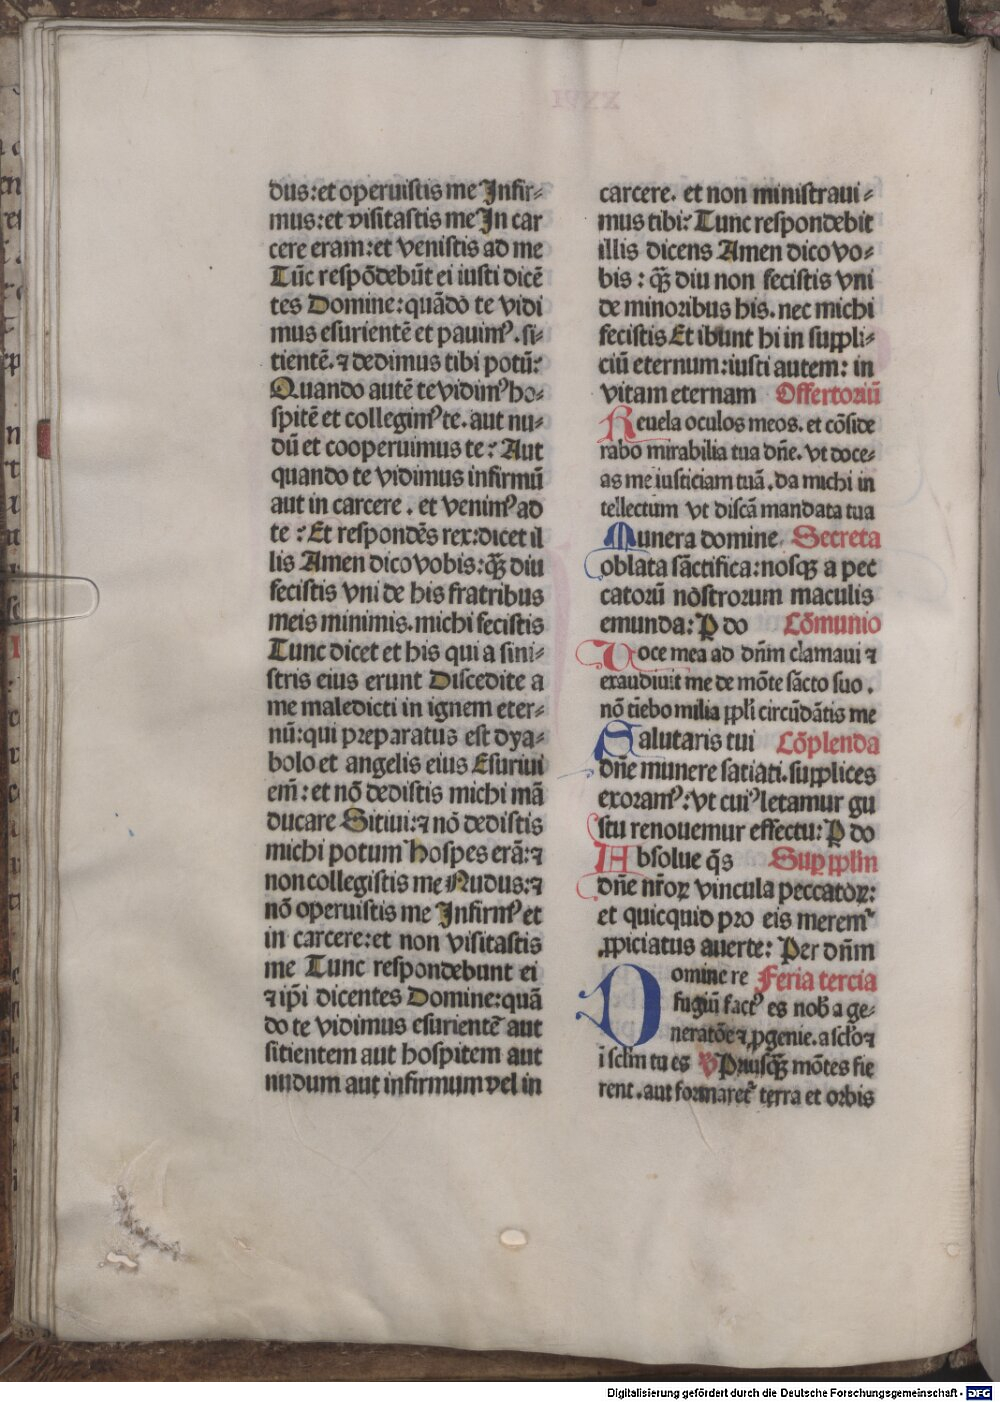 dus: et operuistis me Infir-
mus: et visitastis me In car
cere eram: et venistis ad me
Tūc respōdebūt ei iusti dicē
tes Domine: quādo te vidi
mus esurientē et pauimꝰ. si-
tientē. ⁊ dedimus tibi potū:
Quando autē te vidimꝰ ho-
spitē et collegimꝰ te. aut nu-
dū et cooperuimus te: Aut
quando te vidimus infirmū
aut in carcere. et venimꝰ ad
te: Et respondēs rex: dicet il
lis Amen dico vobis: qꝫ̄ diu
fecistis vni de his fratribus
meis minimis. michi fecistis
Tunc dicet et his qui a sini-
stris eius erunt Discedite a
me maledicti in ignem eter-
nū: qui preparatus est dya-
bolo et angelis eius Esuriui
em̄: et nō dedistis michi mā
ducare Sitiui: ⁊ nō dedistis
michi potum hospes erā: ⁊
non collegistis me Nudus: ⁊
nō operuistis me Infirmꝰ et
in carcere: et non visitastis
me Tunc respondebunt ei
⁊ ip̄i dicentes Domine: quā
do te vidimus esurientē aut
sitientem aut hospitem aut
nudum aut infirmum vel in
carcere. et non ministraui-
mus tibi: Tunc respondebit
illis dicens Amen dico vo-
bis: qꝫ̄ diu non fecistis vni
de minoribus his. nec michi
fecistis Et ibunt hi in suppli-
ciū eternum: iusti autem: in
vitam eternam Offertoriū
Reuela oculos meos. et cōside
rabo mirabilia tua dn̄e. vt doce-
as me iusticiam tuā. da michi in
tellectum vt discā mandata tua
Munera domine Secreta
oblata sāctifica: nosqꝫ a pec
catorū nostrorum maculis
emunda: P do Cōmunio
Uoce mea ad dn̄m clamaui ⁊
exaudiuit me de mōte sācto suo.
nō timebo milia ppl̄i circūdātis me
Salutaris tui Cōplenda
dn̄e munere satiati. supplices
exoramꝰ: vt cuiꝰ letamur gu
stu renouemur effectu: P do
Absolue qs̄ Sup ppl̄m
dn̄e nr̄oꝝ vincula peccatoꝝ:
et quicquid pro eis meremᷣ
ꝓpiciatus auerte: Per dn̄m
Domine re Feria tercia
fugiū factꝰ es nob̄ a ge-
neratōe ⁊ ꝓgenie. a scl̄o ⁊
i scl̄m tu es V Priusqꝫ̄ mōtes fie
rent. aut formaretᷣ terra et orbis
Digitalisierung gefördert durch die Deutsche Forschungsgemeinschaft - DFG